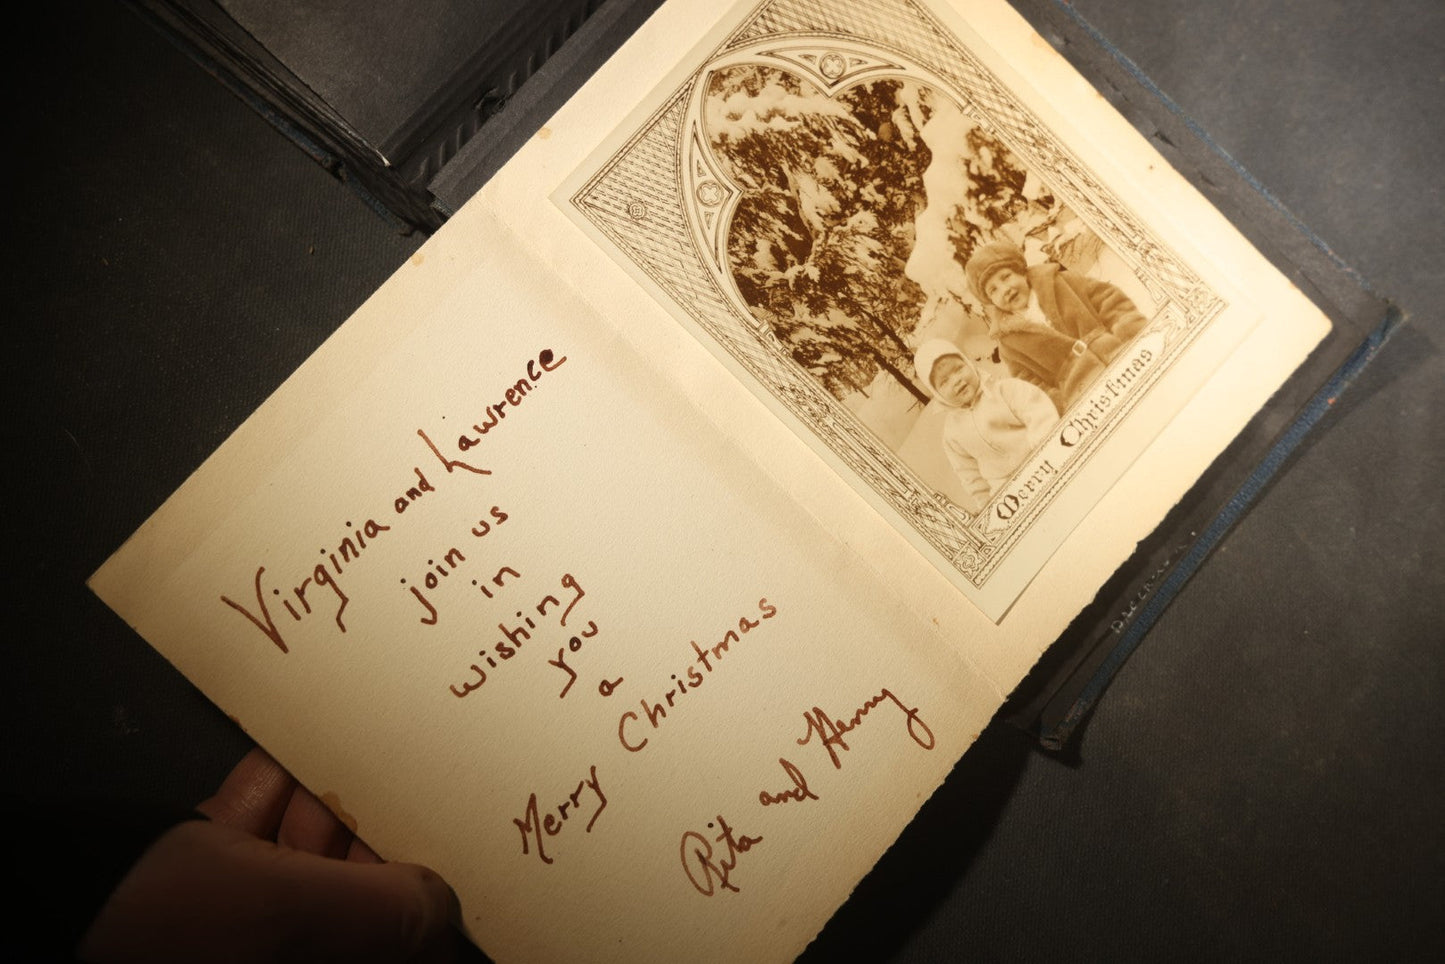 Virginia and Lawrence
join us
in
wishing
you
a
Merry Christmas
Rita and Henry
Merry Christmas